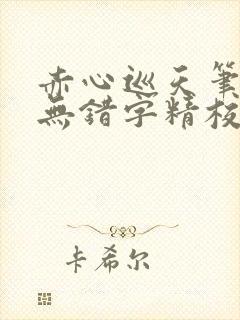 赤心巡天筆
無錯字精校
卡希尔